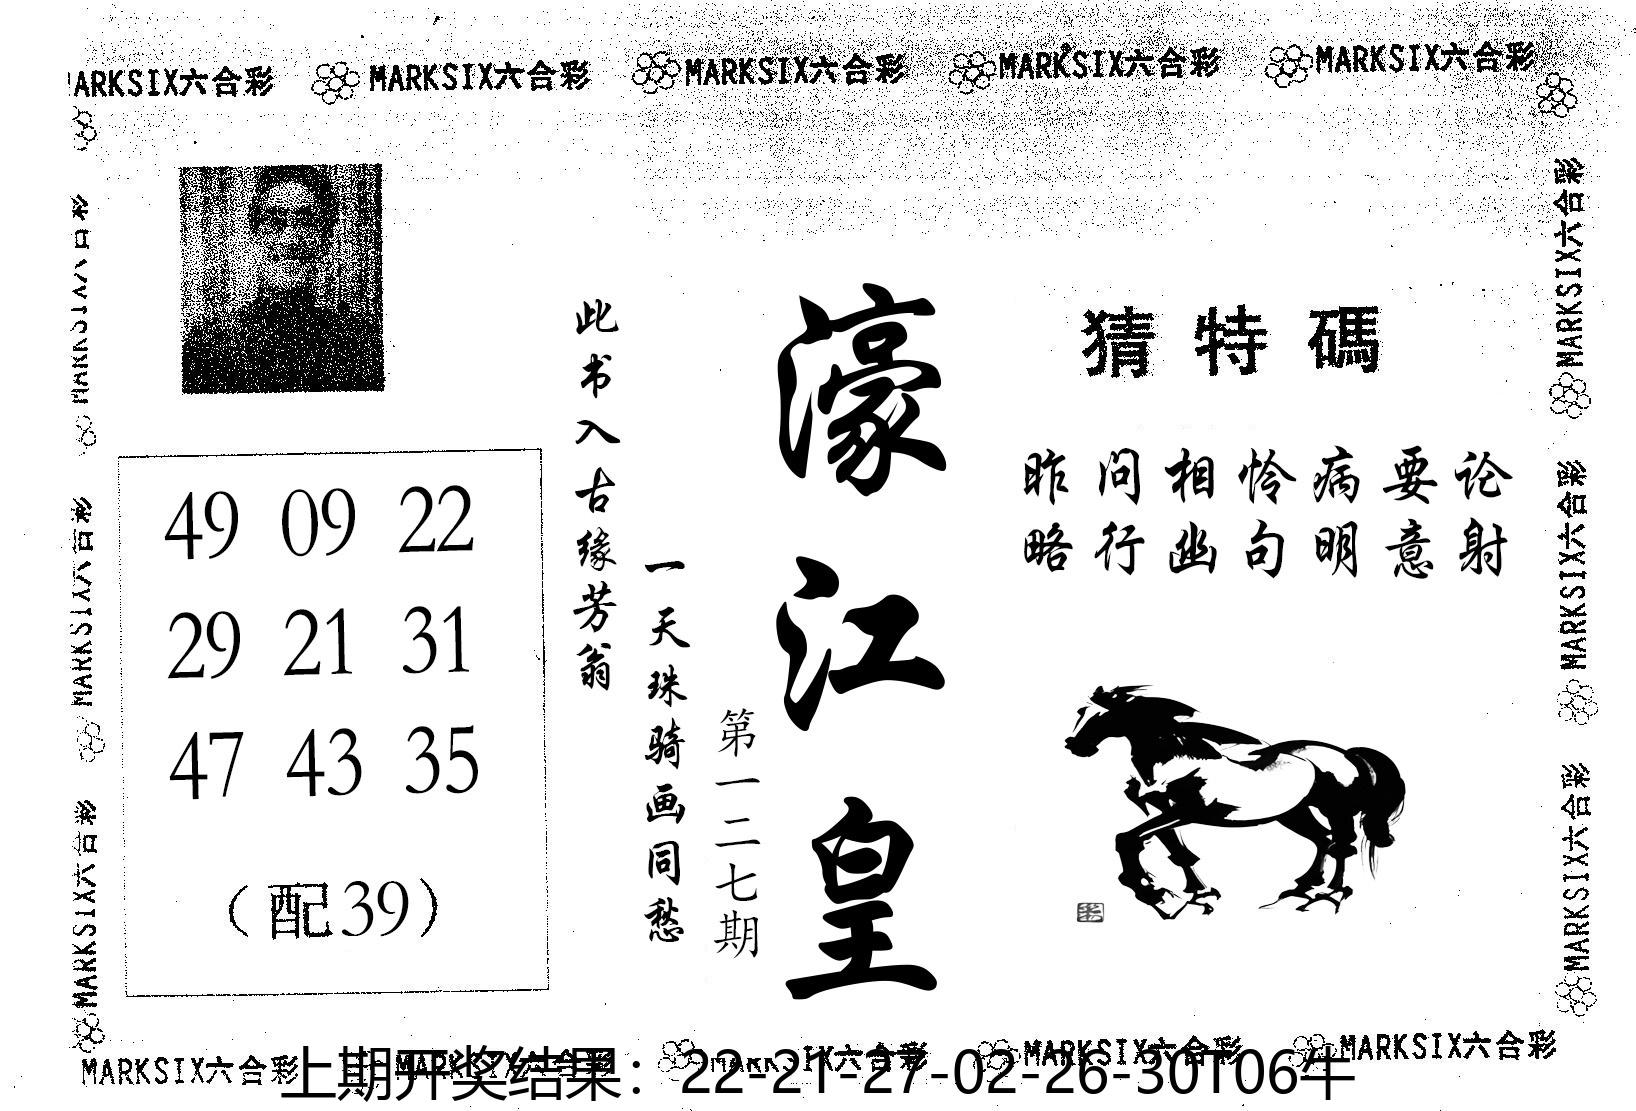 MARKSIX六合彩 MARKSIX六合彩 MARKSIX六合彩 MARKSIX六合彩 MARKSIX六合彩
MARKSIX六合彩
MARKSIX六合彩
MARKSIX六合彩
49 09 22
29 21 31
47 43 35
(配39)
此书入古缘芳翁
一天珠骑画同愁
第一二七期
濠江皇
猜特碼
昨问相怜病要论
略行幽句明意射
MARKSIX六合彩
MARKSIX六合彩
MARKSIX六合彩
MARKSIX六合彩 MARKSIX六合彩 MARKSIX六合彩 MARKSIX六合彩 MARKSIX六合彩
上期开奖结果：22-21-27-02-26-30T06牛